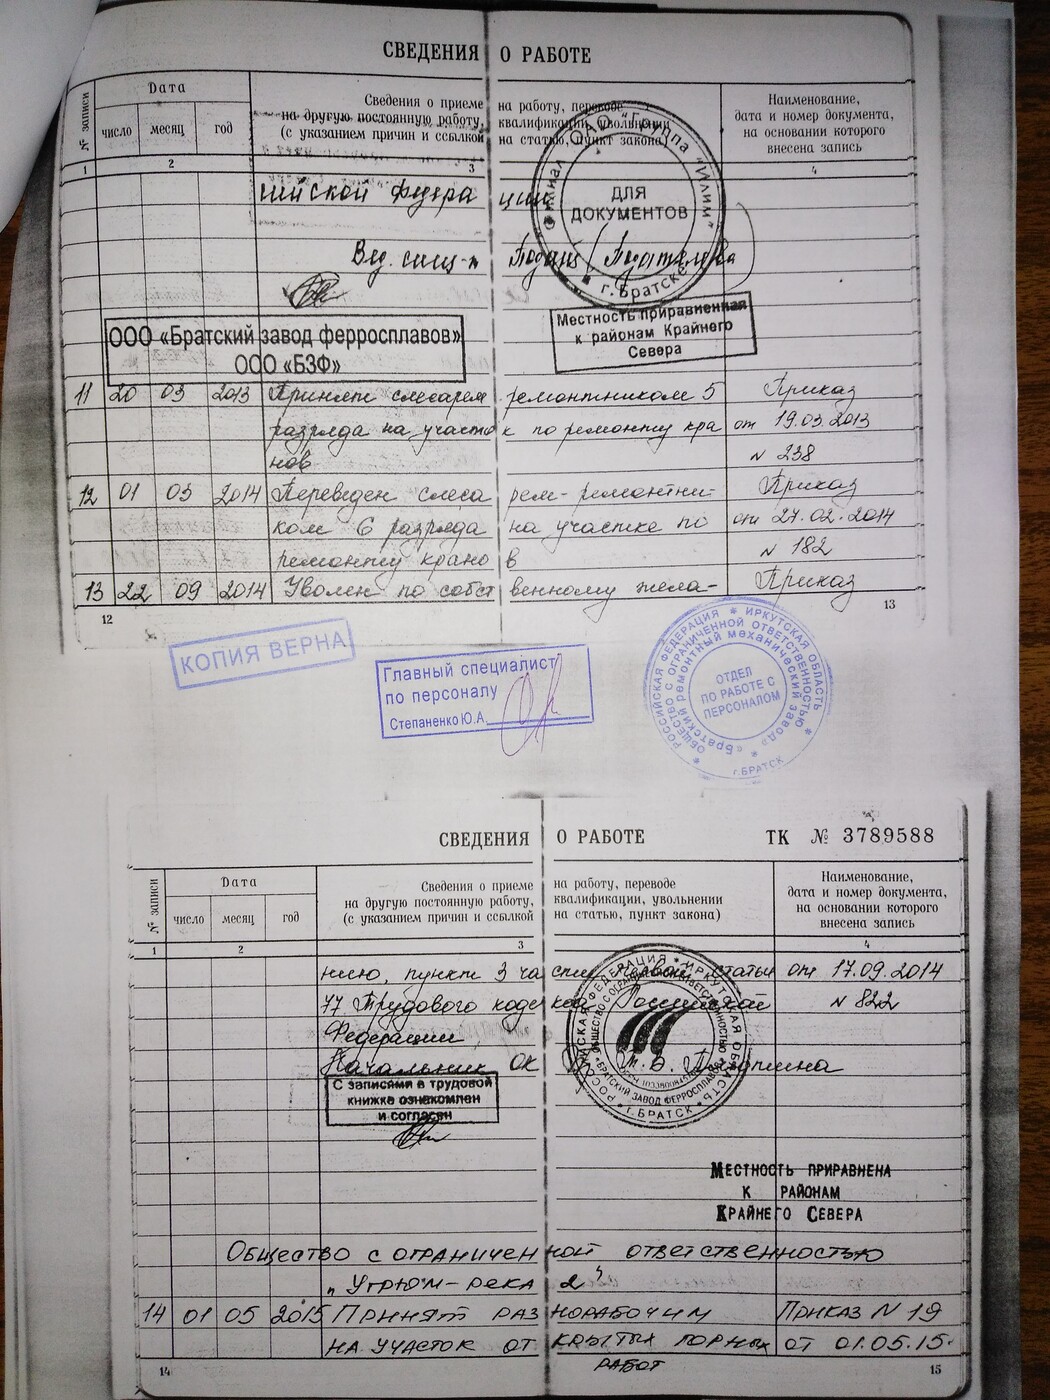 СВЕДЕНИЯ О РАБОТЕ
№ записи
Дата
число
месяц
год
Сведения о приеме на работу, переводе
на другую постоянную работу, квалификации, увольнении
(с указанием причин и ссылкой на статью, пункт закона)
Наименование,
дата и номер документа,
на основании которого
внесена запись
1 2 3 4
Филиал ОАО "Группа "Илим"
г. Братск
ДЛЯ
ДОКУМЕНТОВ
ийской Федерации
Вед. спец-т
Местность приравненная
к районам Крайнего
Севера
ООО «Братский завод ферросплавов»
ООО «БЗФ»
11 20 03 2013 Принят слесарем ремонтником 5 Приказ
разряда на участок по ремонту кра от 19.03.2013
нов N 238
12 01 03 2014 Переведен слесарем-ремонтни- Приказ
ком 6 разряда на участке по от 27.02.2014
ремонту кранов N 182
13 22 09 2014 Уволен по собственному жела- Приказ
12 13
КОПИЯ ВЕРНА
Главный специалист
по персоналу
Степаненко Ю.А.
РОССИЙСКАЯ ФЕДЕРАЦИЯ * ИРКУТСКАЯ ОБЛАСТЬ *
ОБЩЕСТВО С ОГРАНИЧЕННОЙ ОТВЕТСТВЕННОСТЬЮ
«Братский ремонтный механический завод»
г.БРАТСК
ОТДЕЛ
ПО РАБОТЕ С
ПЕРСОНАЛОМ
СВЕДЕНИЯ О РАБОТЕ ТК № 3789588
№ записи
Дата
число
месяц
год
Сведения о приеме на работу, переводе
на другую постоянную работу, квалификации, увольнении
(с указанием причин и ссылкой на статью, пункт закона)
Наименование,
дата и номер документа,
на основании которого
внесена запись
1 2 3 4
нию, пункт 3 части первой статьи от 17.09.2014
77 Трудового кодекса Российской N 822
Федерации
Начальник ОК
РОССИЙСКАЯ ФЕДЕРАЦИЯ * ИРКУТСКАЯ ОБЛАСТЬ *
ОБЩЕСТВО С ОГРАНИЧЕННОЙ ОТВЕТСТВЕННОСТЬЮ
«БРАТСКИЙ ЗАВОД ФЕРРОСПЛАВОВ»
г.БРАТСК
С записями в трудовой
книжке ознакомлен
и согласен
МЕСТНОСТЬ ПРИРАВНЕНА
К РАЙОНАМ
КРАЙНЕГО СЕВЕРА
ОБЩЕСТВО С ОГРАНИЧЕННОЙ ОТВЕТСТВЕННОСТЬЮ
"УГРЮМ-РЕКА 2"
14 01 05 2015 ПРИНЯТ РАЗНОРАБОЧИМ ПРИКАЗ N 19
НА УЧАСТОК ОТКРЫТЫХ ГОРНЫХ ОТ 01.05.15.
РАБОТ
14 15